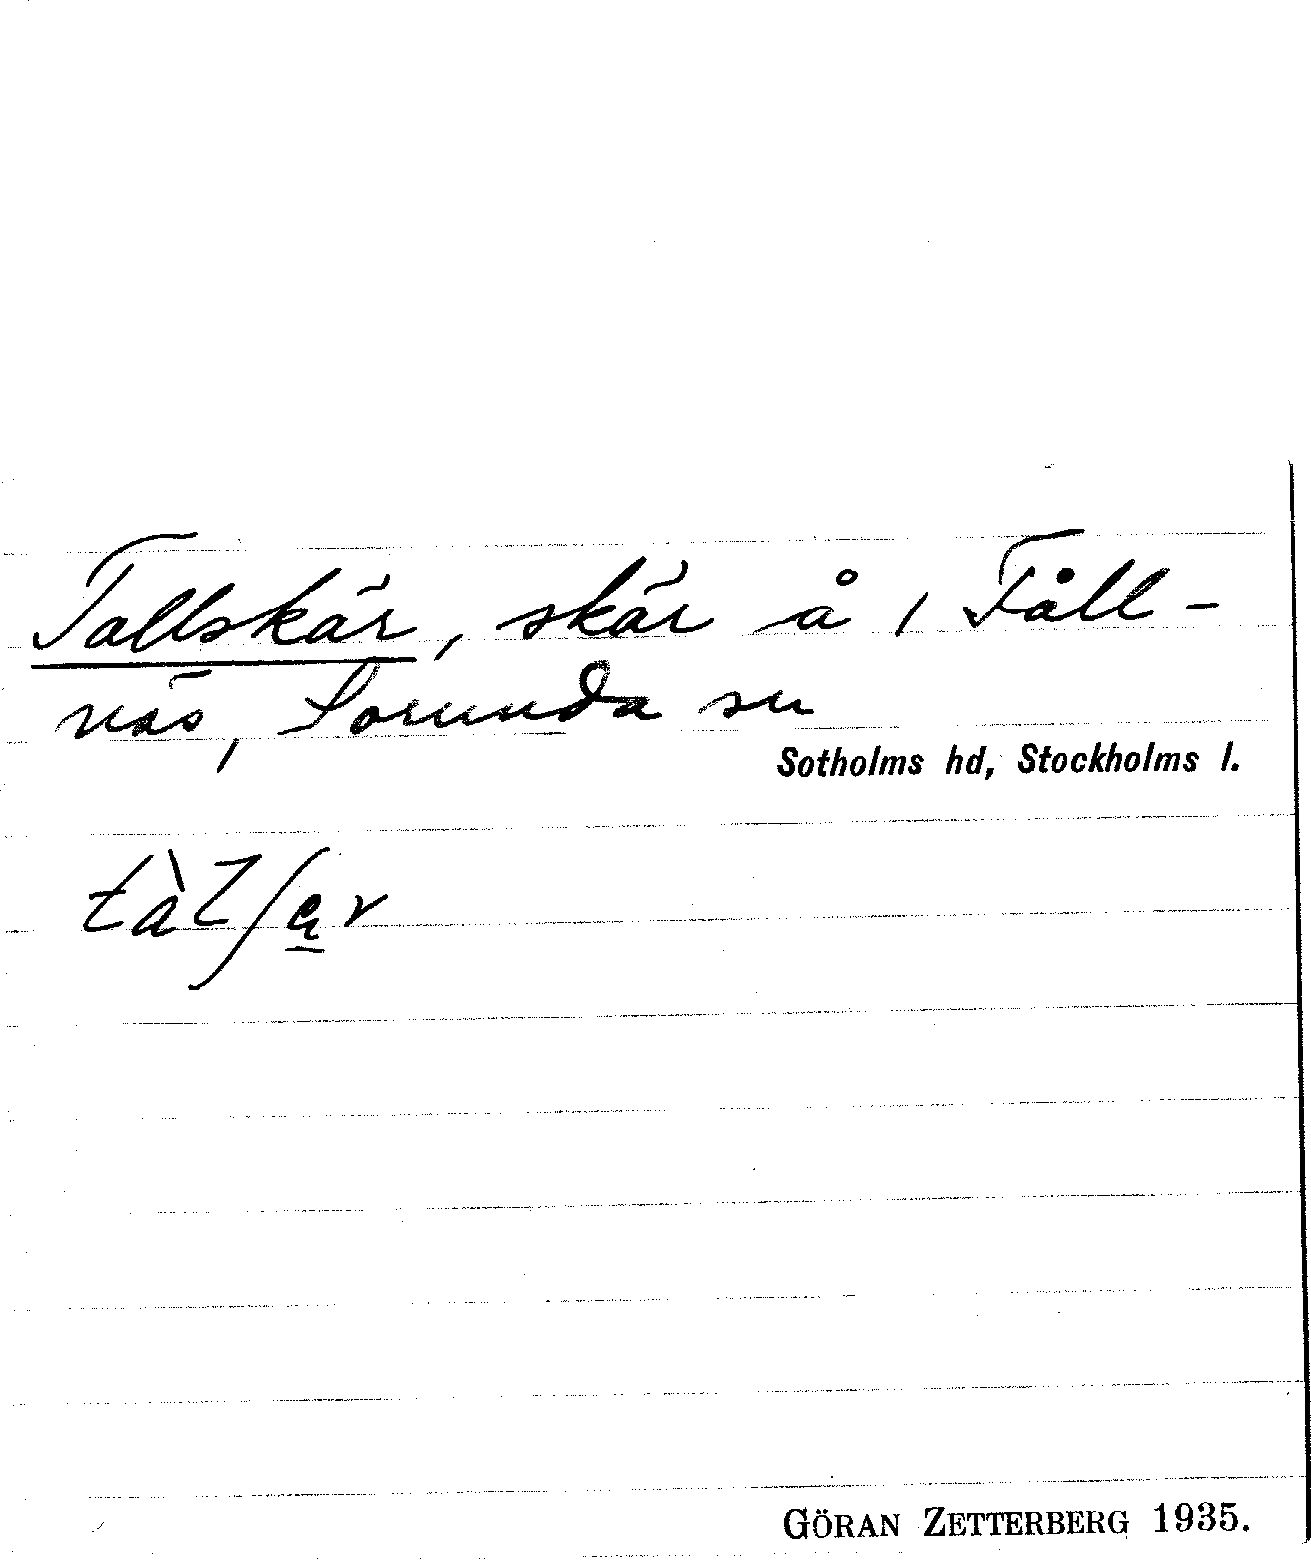 Tallskär, skär å 1 Fåll-
näs, Sorunda sn
Sotholms hd, Stockholms l.
tàlʃą̲r
GÖRAN ZETTERBERG 1935.